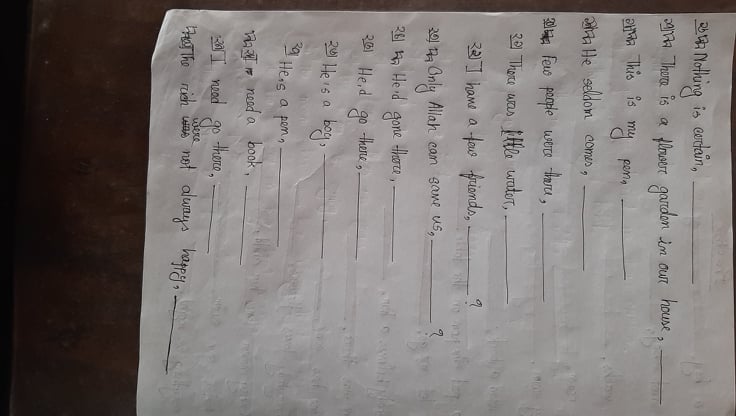 Nothing is certain, ________
There is a flower garden in our house, ________
This is my pen, ________
He seldom comes, ________
Few people were there, ________
২১) There was little water, ________
২২) I have a few friends, ________?
২৩) Only Allah can save us, ________?
২৪) He'd gone there, ________
২৫) He'd go there, ________
২৬) He is a boy, ________
২৭) He's a pen, ________
need a book, ________
২৯) I need go there, ________
The rich were not always happy, ________